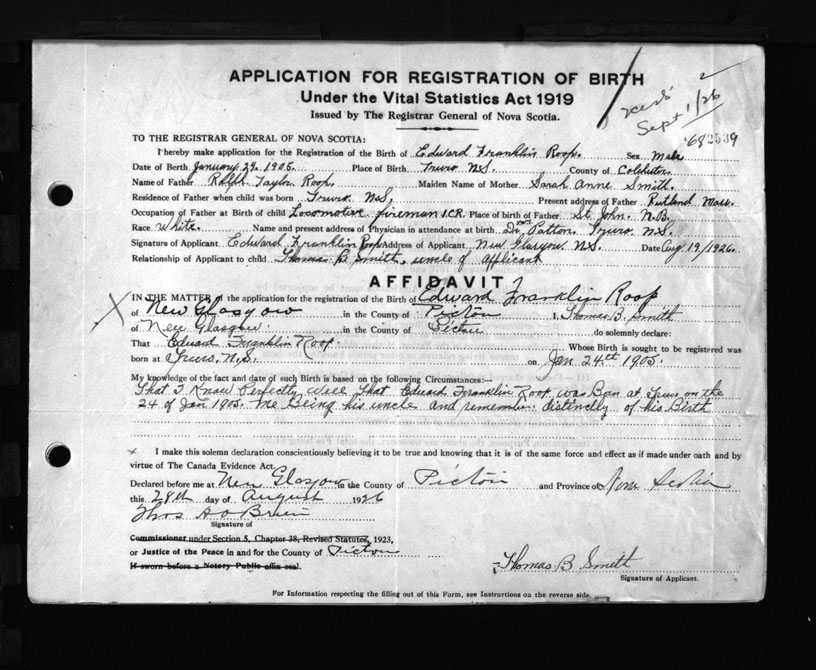 APPLICATION FOR REGISTRATION OF BIRTH
Under the Vital Statistics Act 1919
Issued by The Registrar General of Nova Scotia.
2
Sept 1/26
682539
TO THE REGISTRAR GENERAL OF NOVA SCOTIA:
I hereby make application for the Registration of the Birth of Edward Franklin Roop. Sex Male
Date of Berth January 24. 1905. Place of Birth Truro N.S. County of Colchester.
Name of Father Ralph Taylor Roop Maiden Name of Mother Sarah Anne Smith.
Residence of Father when child was born Truro N.S, Present address of Father Rutland Mass.
Occupation of Father at Birth of child Locomotive fireman I.C.R. Place of birth of Father St. John. N.B.
Race White. Name and present address of Physician in attendance at birth Dr Patton. Truro. N.S.
Signature of Applicant Edward Franklin Roop Address of Applicant New Glasgow. N.S. Date Aug. 19/1926.
Relationship of Applicant to child Thomas B Smith, uncle of applicant
AFFIDAVIT
IN THE MATTER of the application for the registration of the Birth of Edward Franklin Roop
of New Glasgow in the County of Pictou I, Thomas B. Smith
of New Glasgow. in the County of Pictou do solemnly declare:
That Edward Franklin Roop. Whose Birth is sought to be registered was
born at Truro, N.S. on Jan 24th 1905.
My knowledge of the fact and date of such Birth is based on the following Circumstances:—
That I Know Perfectly well That Edward Franklin Roop was Born at Truro on the
24 of Jan 1905. Me Being his uncle and remember distinctly of his Birth
x I make this solemn declaration conscientiously believing it to be true and knowing that it is of the same force and effect as if made under oath and by
virtue of The Canada Evidence Act.
Declared before me at New Glasgow in the County of Pictou and Province of Nova Scotia
this 28th day of August 1926
Thos A O'Brien
Signature of
Commissioner under Section 5, Chapter 38, Revised Statutes, 1923,
or Justice of the Peace in and for the County of Pictou
If sworn before a Notary Public affix seal.
Thomas B Smith
Signature of Applicant.
For Information respecting the filling out of this Form, see Instructions on the reverse side.